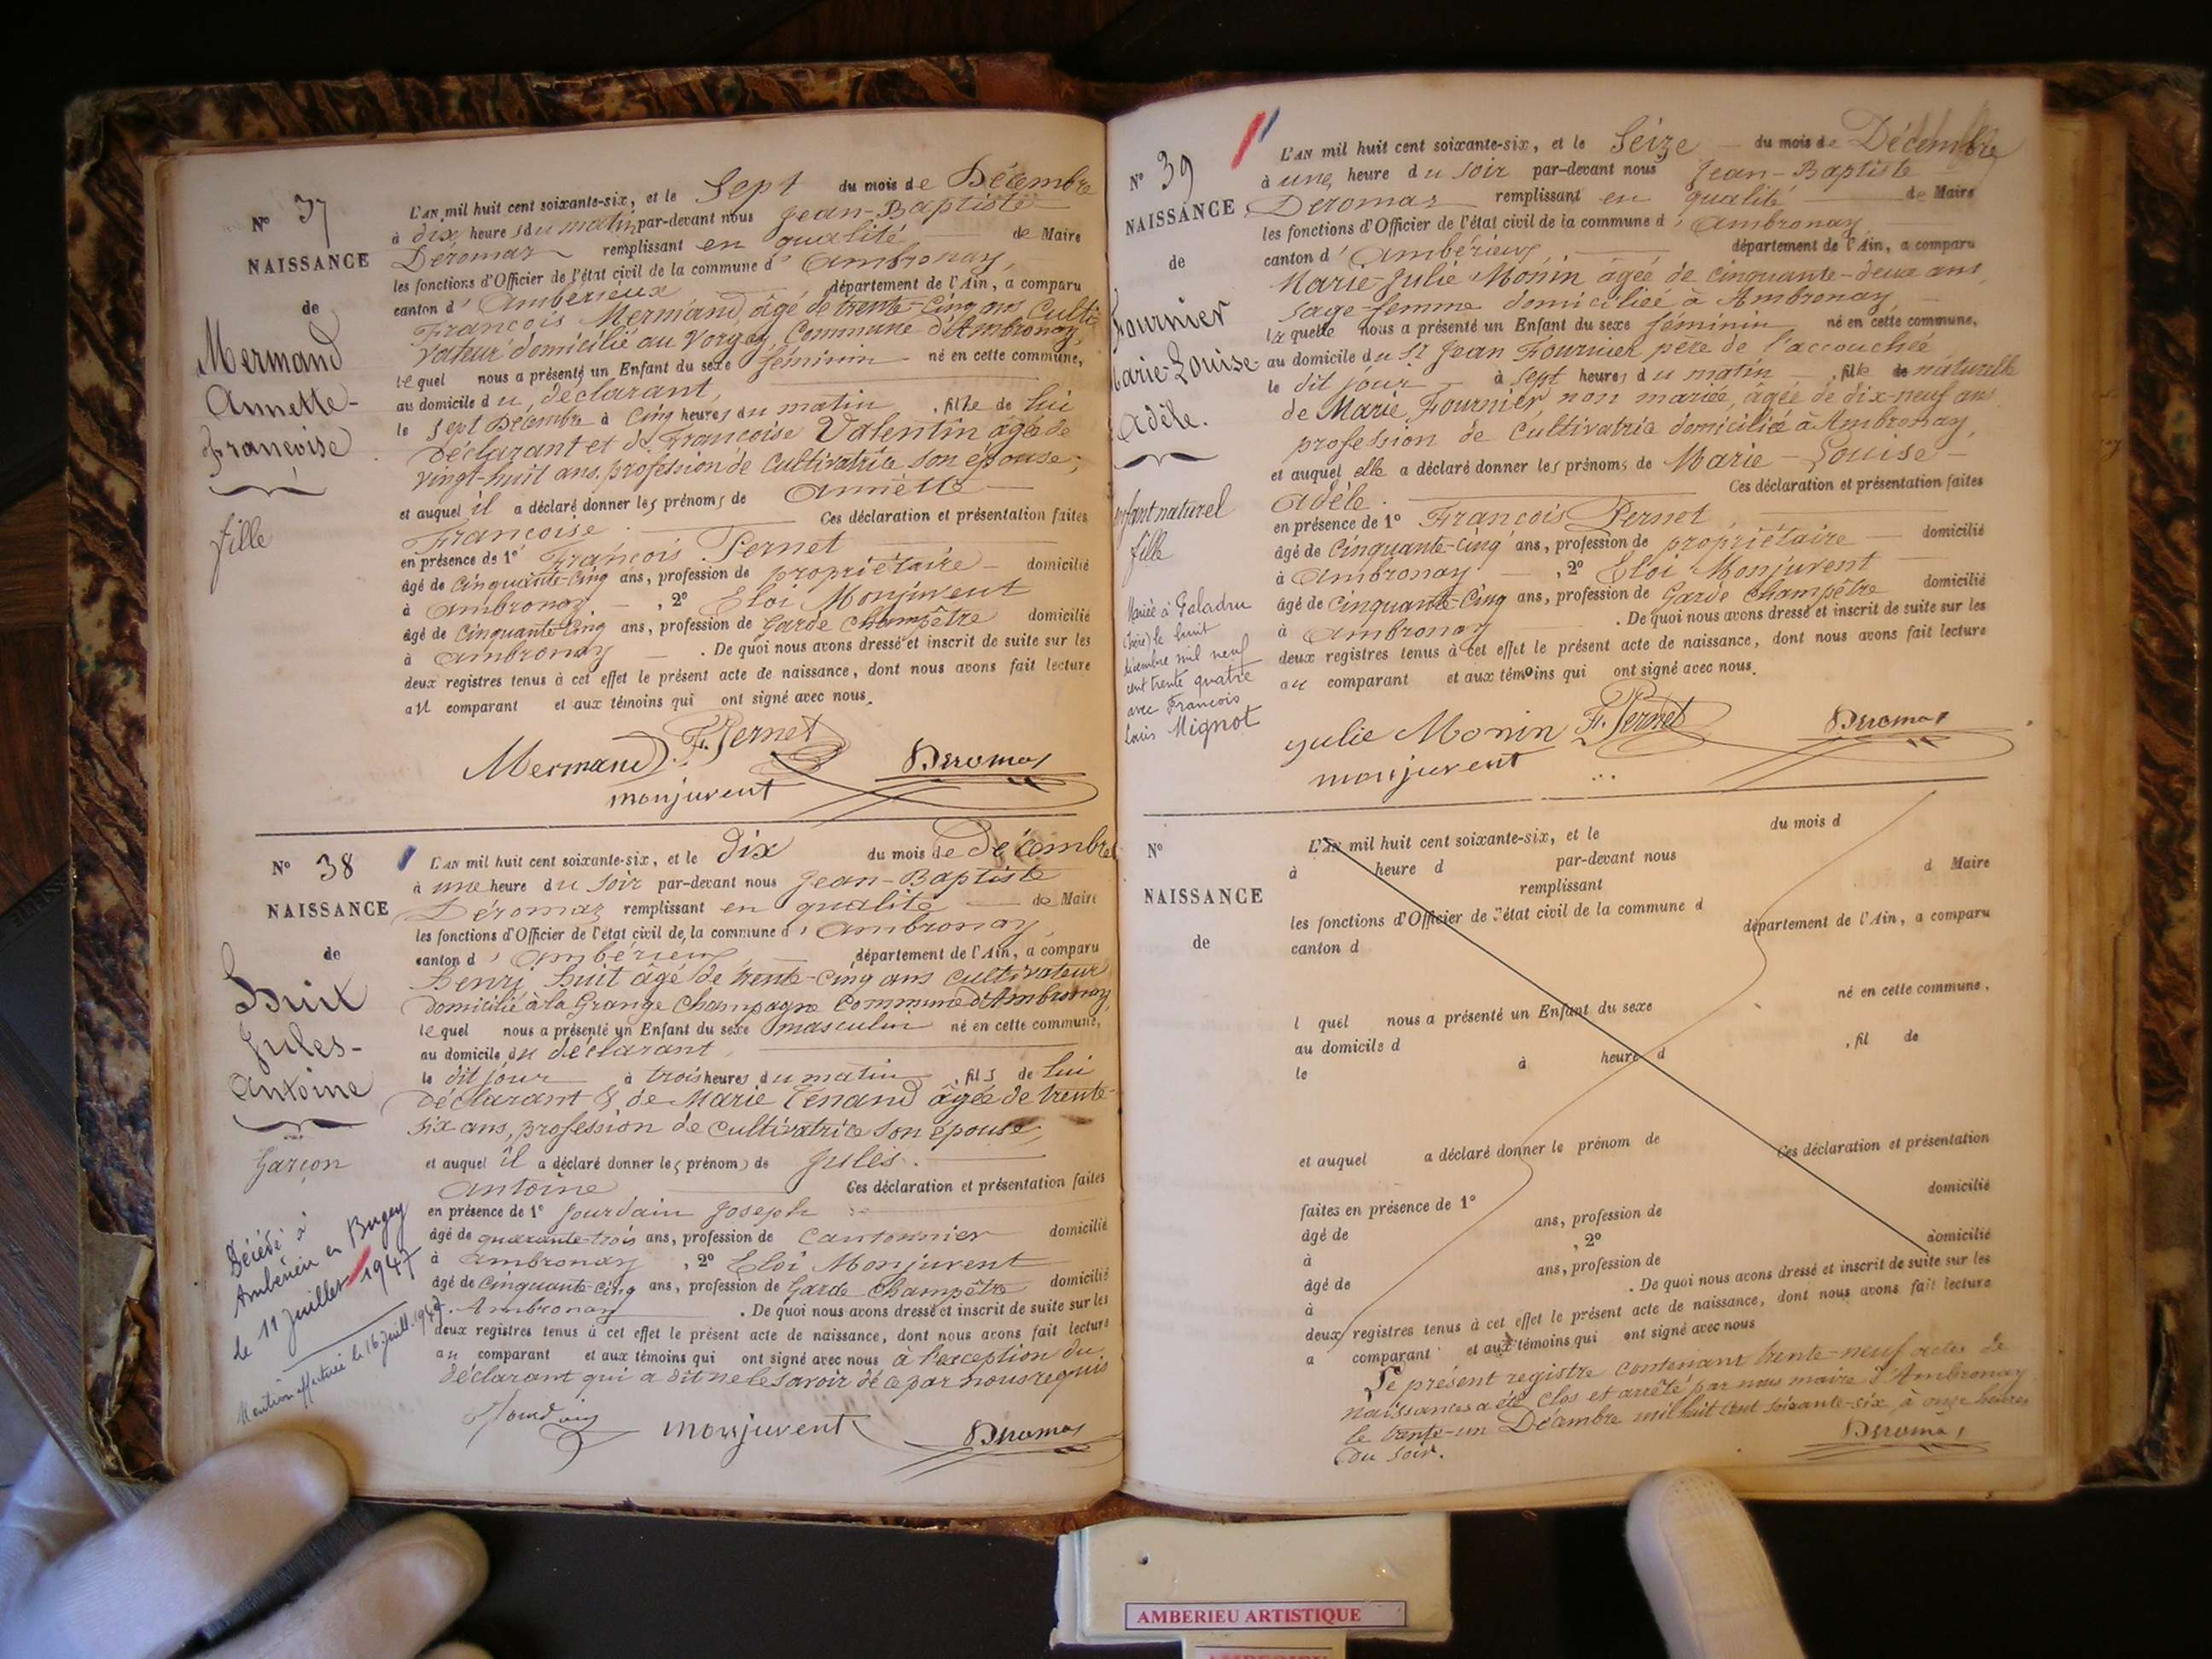 N° 37
NAISSANCE
de
Mermand
Annette-
Françoise
fille
L'AN mil huit cent soixante-six, et le Sept du mois de Décembre
à dix heures du matin par-devant nous Jean-Baptiste
Déromas remplissant en qualité de Maire
les fonctions d'Officier de l'état civil de la commune d'Ambronay,
canton d'Ambérieux département de l'Ain, a comparu
François Mermand, âgé de trente-cinq ans, Culti-
vateur domicilié au Vorgey, Commune d'Ambronay,
lequel nous a présenté un Enfant du sexe féminin né en cette commune,
au domicile du déclarant,
le sept Décembre à Cinq heures du matin, fille de lui
Déclarant et de Françoise Valentin âgée de
vingt-huit ans, profession de Cultivatrice son épouse,
et auquel il a déclaré donner les prénoms de Annette
Françoise. Ces déclaration et présentation faites
en présence de 1° François Pernet
âgé de Cinquante-Cinq ans, profession de propriétaire domicilié
à Ambronay, 2° Eloi Monjuvent
âgé de Cinquante-Cinq ans, profession de Garde Champêtre domicilié
à Ambronay. De quoi nous avons dressé et inscrit de suite sur les
deux registres tenus à cet effet le présent acte de naissance, dont nous avons fait lecture
au comparant et aux témoins qui ont signé avec nous.
Mermand F. Pernet Deromas
monjuvent
N° 38
NAISSANCE
de
Huit
Jules-
Antoine
Garçon
Décédé à
Ambérieu en Bugey
le 11 Juillet 1947
Mention effectuée le 16 Juill. 1947.
L'AN mil huit cent soixante-six, et le dix du mois de Décembre
à une heure du soir par-devant nous Jean-Baptiste
Déromaz remplissant en qualité de Maire
les fonctions d'Officier de l'état civil de la commune d'Ambronay,
canton d'Ambérieux département de l'Ain, a comparu
henri huit âgé de trente-cinq ans cultivateur
domicilié à la Grange Champagne Commune d'Ambronay,
lequel nous a présenté un Enfant du sexe masculin né en cette commune,
au domicile du déclarant,
le dit jour à trois heures du matin, fils de lui
Déclarant & de Marie Tenand âgée de trente-
six ans, profession de cultivatrice son épouse,
et auquel il a déclaré donner les prénoms de Jules.
Antoine Ces déclaration et présentation faites
en présence de 1° Jourdain Joseph
âgé de quarante-trois ans, profession de Cantonnier domicilié
à Ambronay, 2° Eloi Monjuvent
âgé de Cinquante-cinq ans, profession de Garde Champêtre domicilié
Ambronay. De quoi nous avons dressé et inscrit de suite sur les
deux registres tenus à cet effet le présent acte de naissance, dont nous avons fait lecture
au comparant et aux témoins qui ont signé avec nous à l'exception du
déclarant qui a dit ne le savoir de ce par nous requis
Jourdain monjuvent Deromas
N° 39
NAISSANCE
de
Fournier
Marie-Louise-
Adèle.
enfant naturel
fille
Mariée à Galadru
(Isère) le huit
décembre mil neuf
cent trente quatre
avec François
Louis Mignot
L'AN mil huit cent soixante-six, et le Seize du mois de Décembre
à une heure du soir par-devant nous Jean-Baptiste
Deromaz remplissant en qualité de Maire
les fonctions d'Officier de l'état civil de la commune d'Ambronay,
canton d'Ambérieux, département de l'Ain, a comparu
Marie-Julie Monin âgée de cinquante-deux ans
sage-femme domiciliée à Ambronay,
laquelle nous a présenté un Enfant du sexe féminin né en cette commune,
au domicile du Sr Jean Fournier père de l'accouchée
le dit jour à sept heures du matin, fille de naturelle
de Marie Fournier, non mariée, âgée de dix-neuf ans
profession de Cultivatrice domiciliée à Ambronay,
et auquel elle a déclaré donner les prénoms de Marie-Louise-
Adèle. Ces déclaration et présentation faites
en présence de 1° François Pernet
âgé de Cinquante-Cinq ans, profession de propriétaire domicilié
à Ambronay, 2° Eloi Monjuvent
âgé de Cinquante-Cinq ans, profession de Garde Champêtre domicilié
à Ambronay. De quoi nous avons dressé et inscrit de suite sur les
deux registres tenus à cet effet le présent acte de naissance, dont nous avons fait lecture
au comparant et aux témoins qui ont signé avec nous.
Julie Monin F. Pernet Deromas
monjuvent
N°
NAISSANCE
de
L'AN mil huit cent soixante-six, et le du mois d
à heure d par-devant nous
remplissant d Maire
les fonctions d'Officier de l'état civil de la commune d
canton d département de l'Ain, a comparu
l quel nous a présenté un Enfant du sexe né en cette commune,
au domicile d
le à heure d , fil de
et auquel a déclaré donner le prénom de
Ces déclaration et présentation
faites en présence de 1°
âgé de ans, profession de domicilié
à , 2°
âgé de ans, profession de domicilié
à . De quoi nous avons dressé et inscrit de suite sur les
deux registres tenus à cet effet le présent acte de naissance, dont nous avons fait lecture
a comparant et aux témoins qui ont signé avec nous
Le présent registre contenant trente-neuf actes de
naissances a été clos et arrêté par nous maire d'Ambronay
le trente-un Décembre mil huit cent soixante-six à onze heures
du soir. Deromas
AMBERIEU ARTISTIQUE